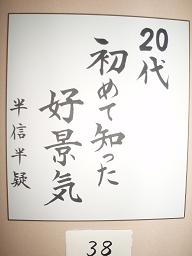 20代
初めて知った
好景気
半信半疑
38